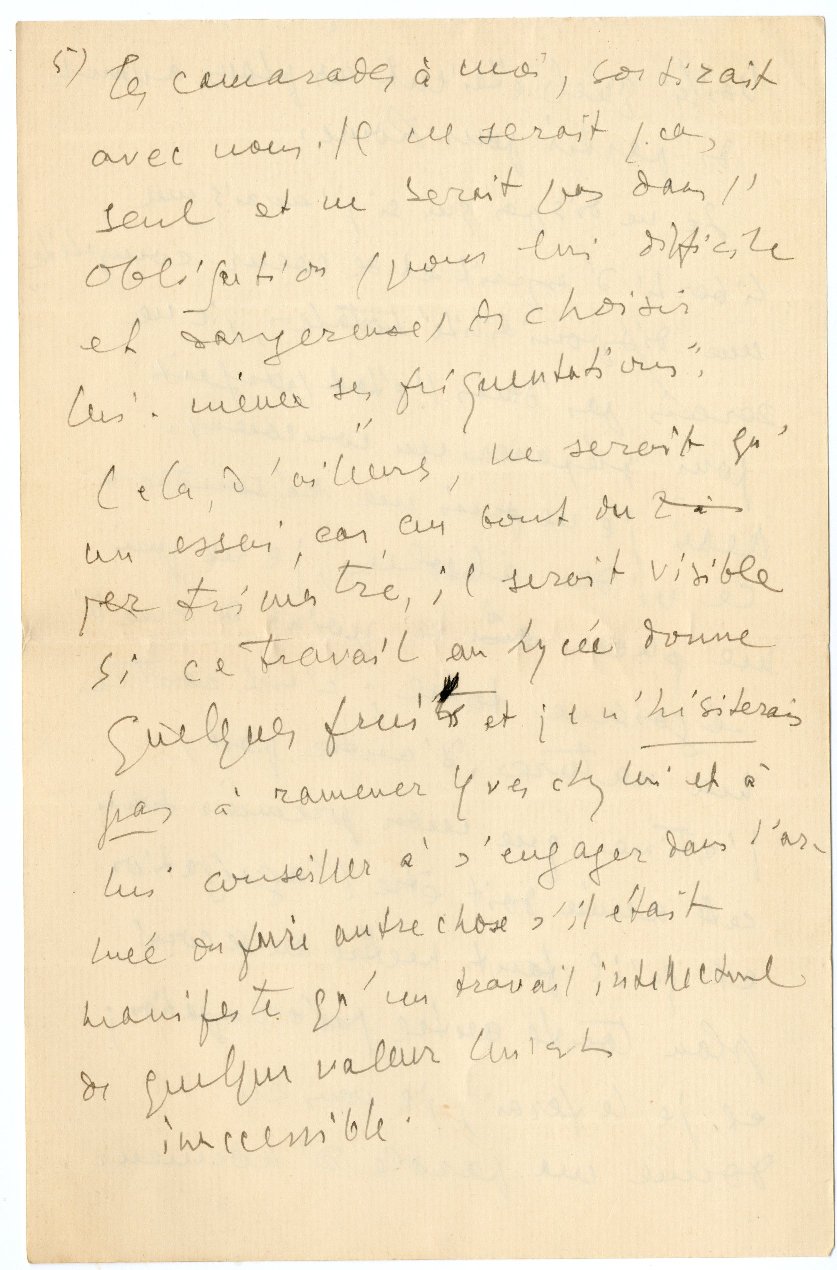 5) les camarades à moi, sortirait
avec nous. Il ne serait pas
seul et ne serait pas dans l'
obligation (pour lui difficile
et dangereuse) de choisir
lui-même ses fréquentations".
Cela, d'ailleurs, ne serait qu'
un essai, car, au bout du
1er trimestre, il serait visible
si ce travail au lycée donne
quelques fruits et je n'hésiterais
pas à ramener Yves chez lui et à
lui conseiller à s'engager dans l'ar-
mée ou faire autre chose s'il était
manifeste qu'un travail intellectuel
de quelque valeur lui est
inaccessible.